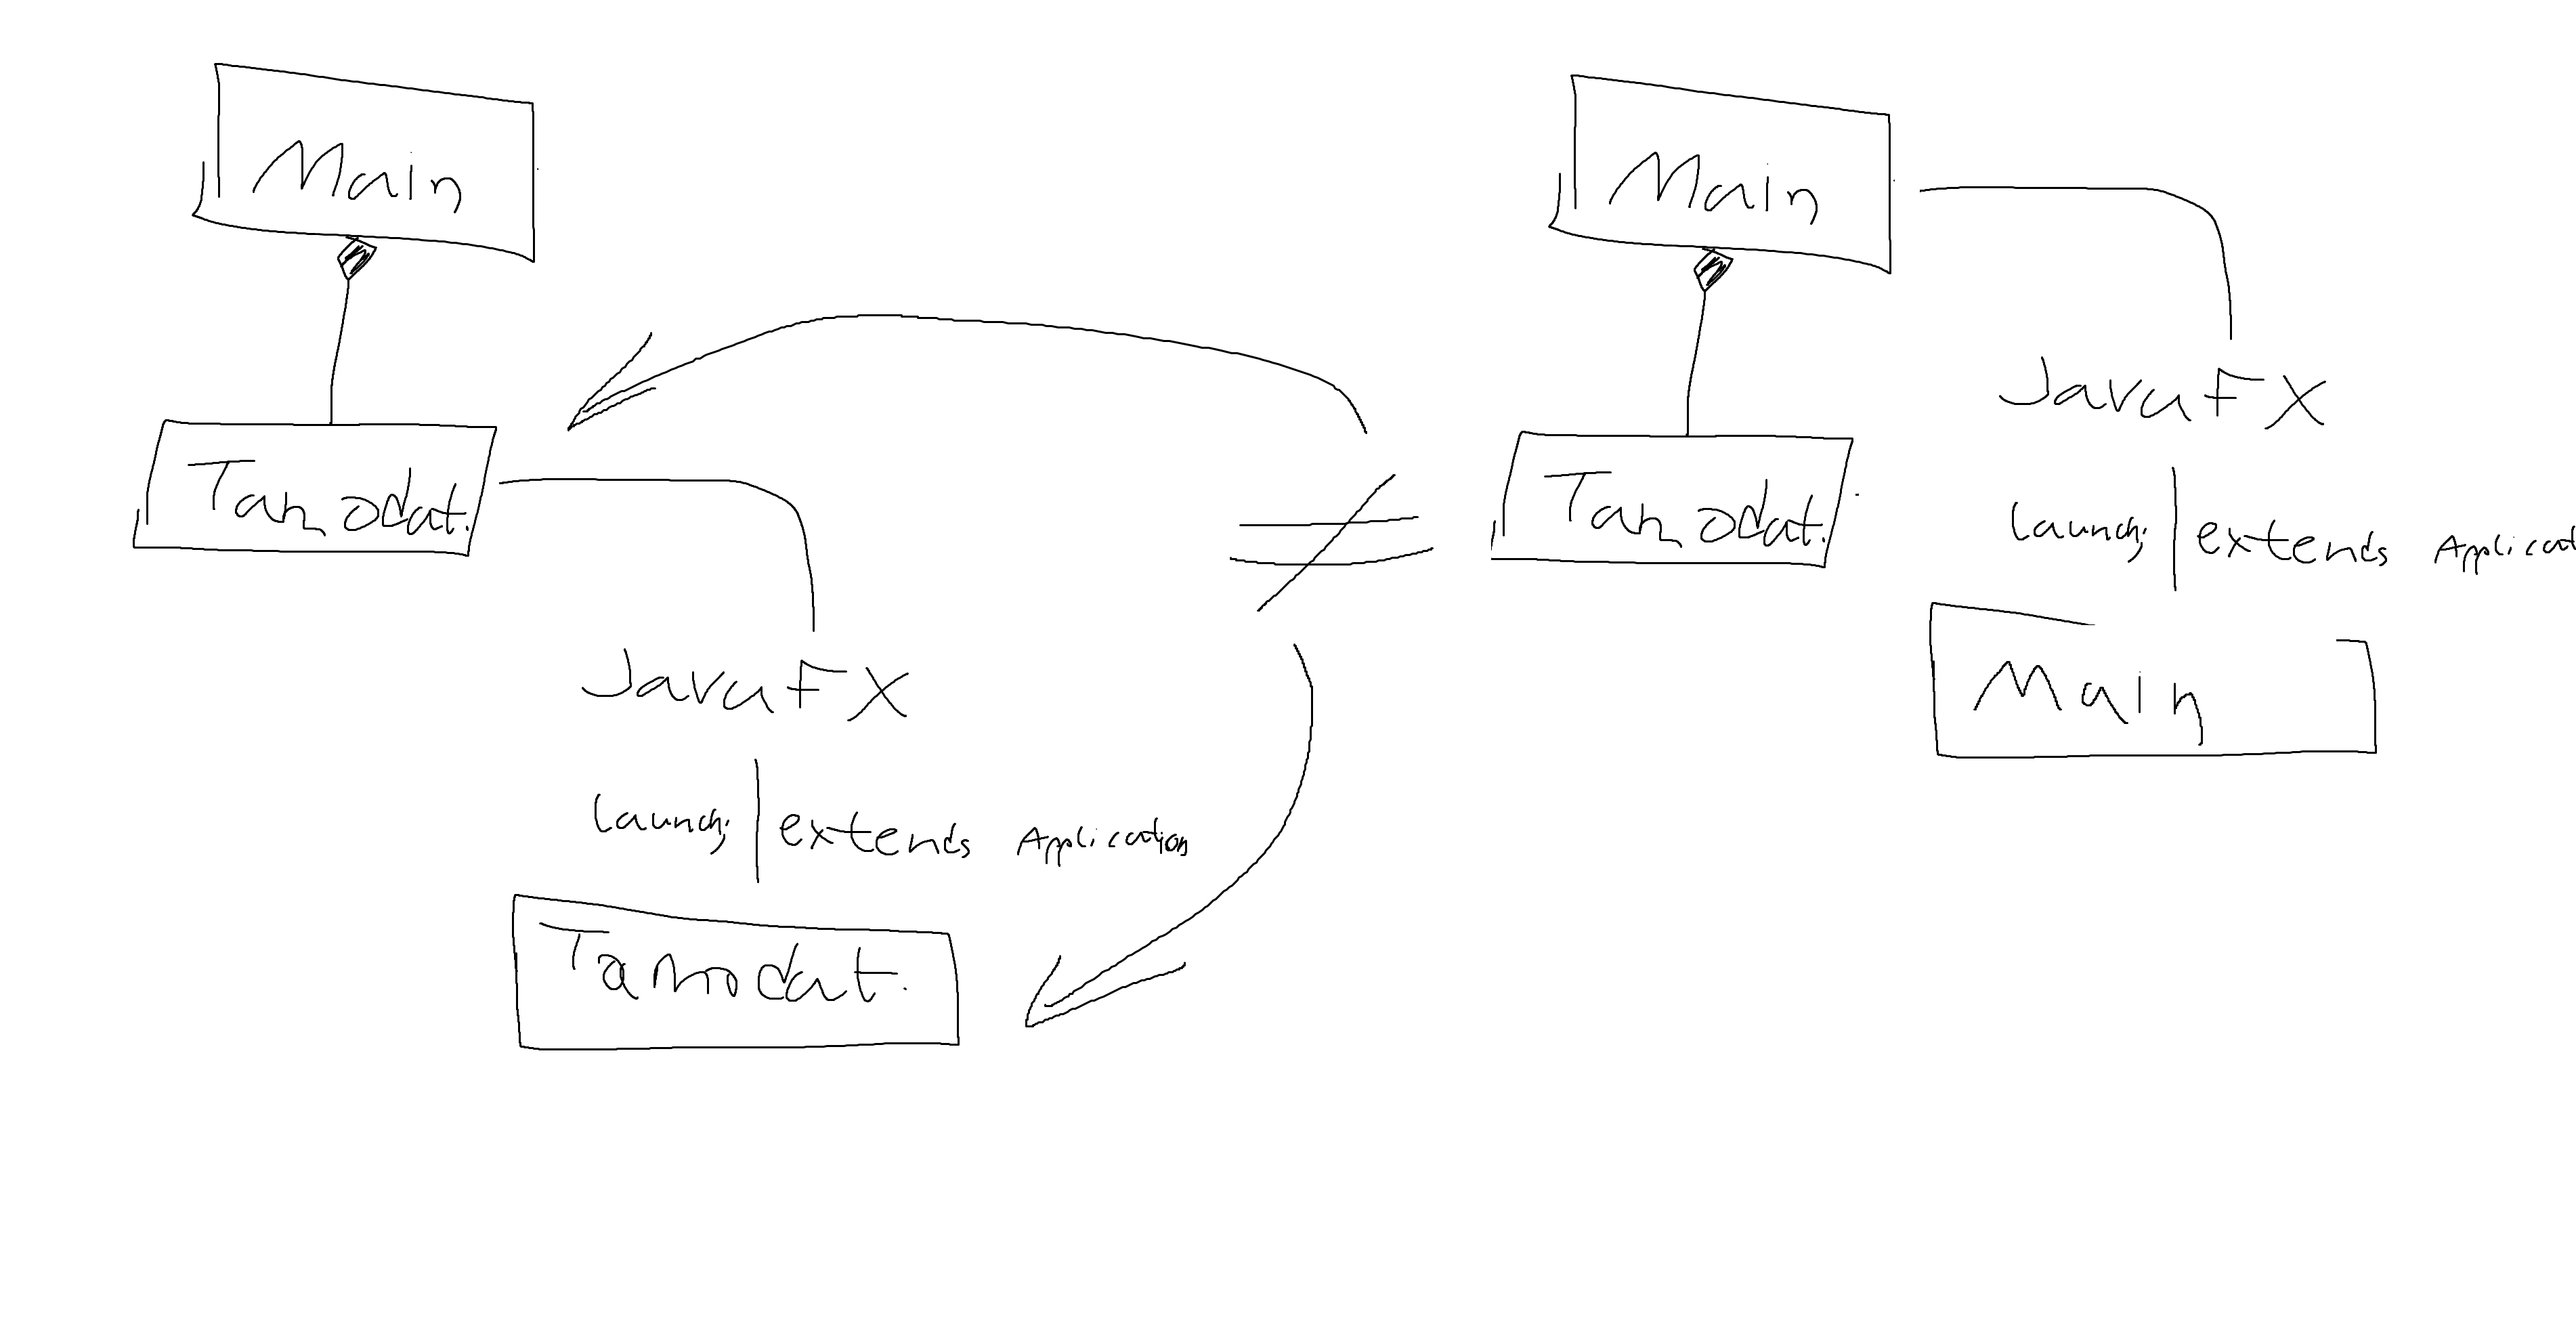 Main
Tamodat.
JavaFX
launch;
extends Application
Tamodat.
≠
Main
Tamodat.
JavaFX
launch;
extends Applicat
Main